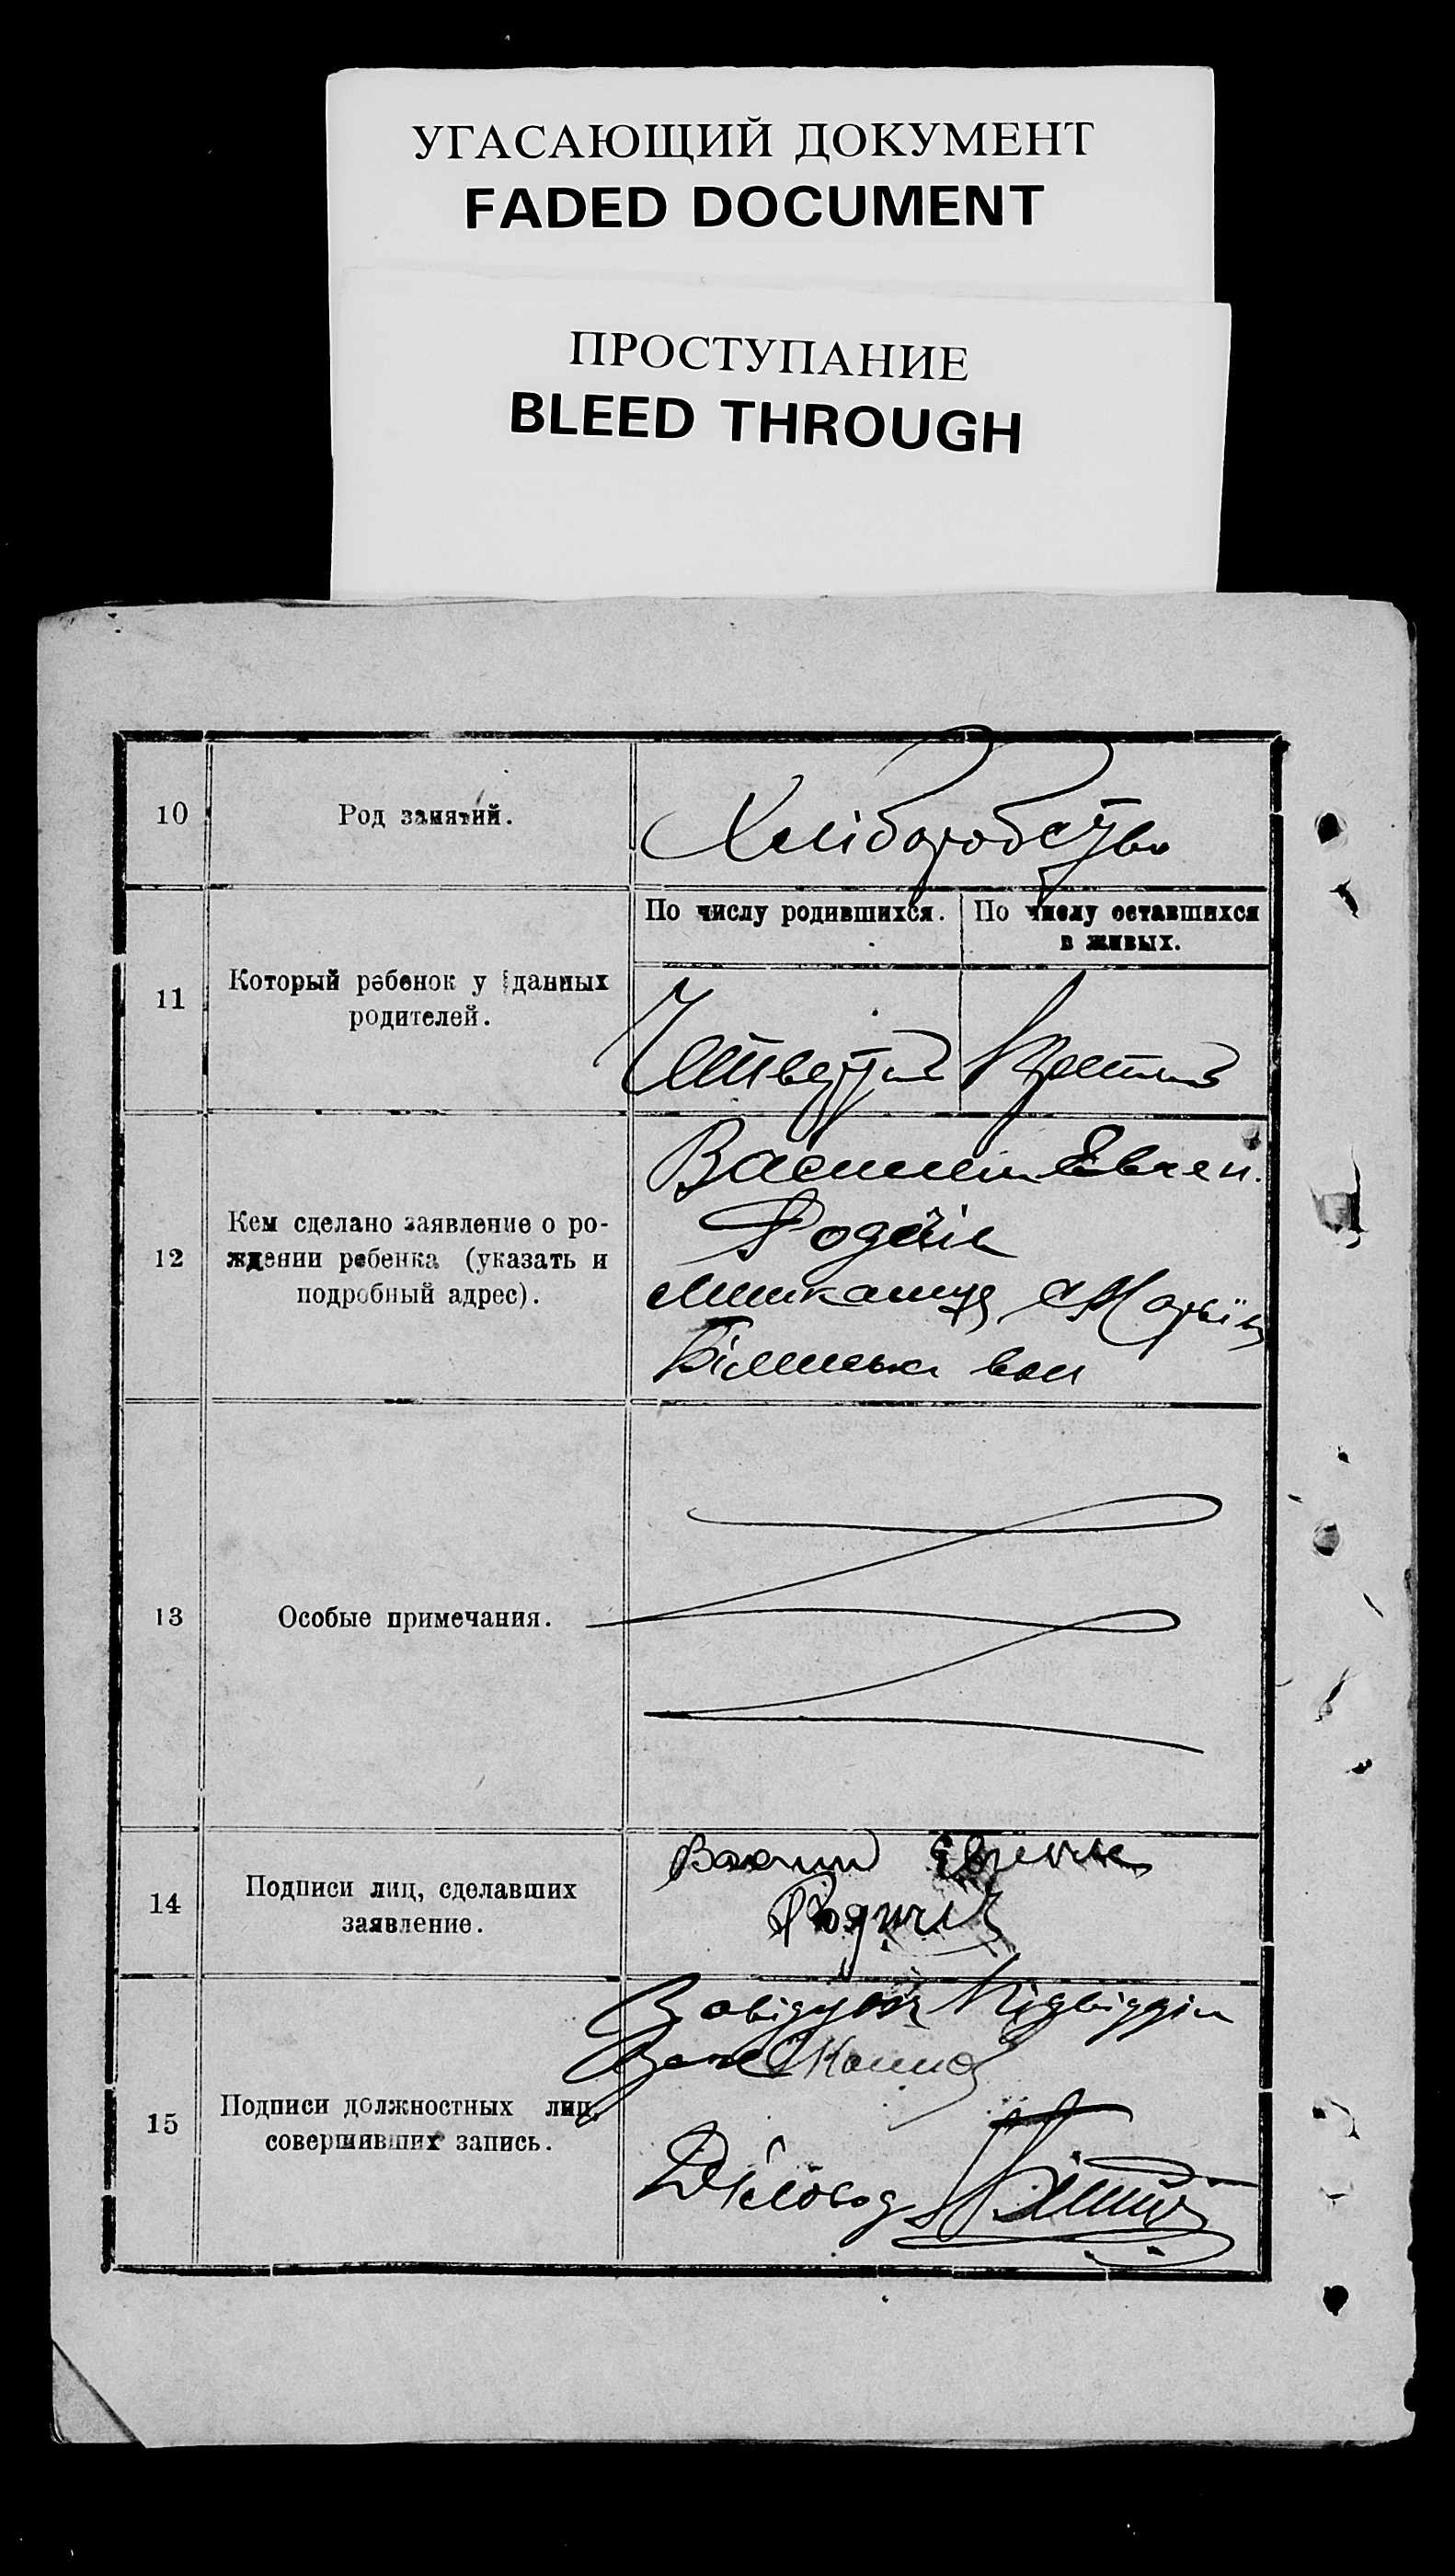 УГАСАЮЩИЙ ДОКУМЕНТ
FADED DOCUMENT
ПРОСТУПАНИЕ
BLEED THROUGH
10
Род занятий.
Хліборобство
11
Который ребенок у данных
родителей.
По числу родившихся.
По числу оставшихся
в живых.
Четвертий
Третий
12
Кем сделано заявление о ро-
ждении ребенка (указать и
подробный адрес).
Василий Евген.
мешканця с
вол
13
Особые примечания.
14
Подписи лиц, сделавших
заявление.
15
Подписи должностных лиц,
совершивших запись.
Завідуюч Підвідділ
Діловод